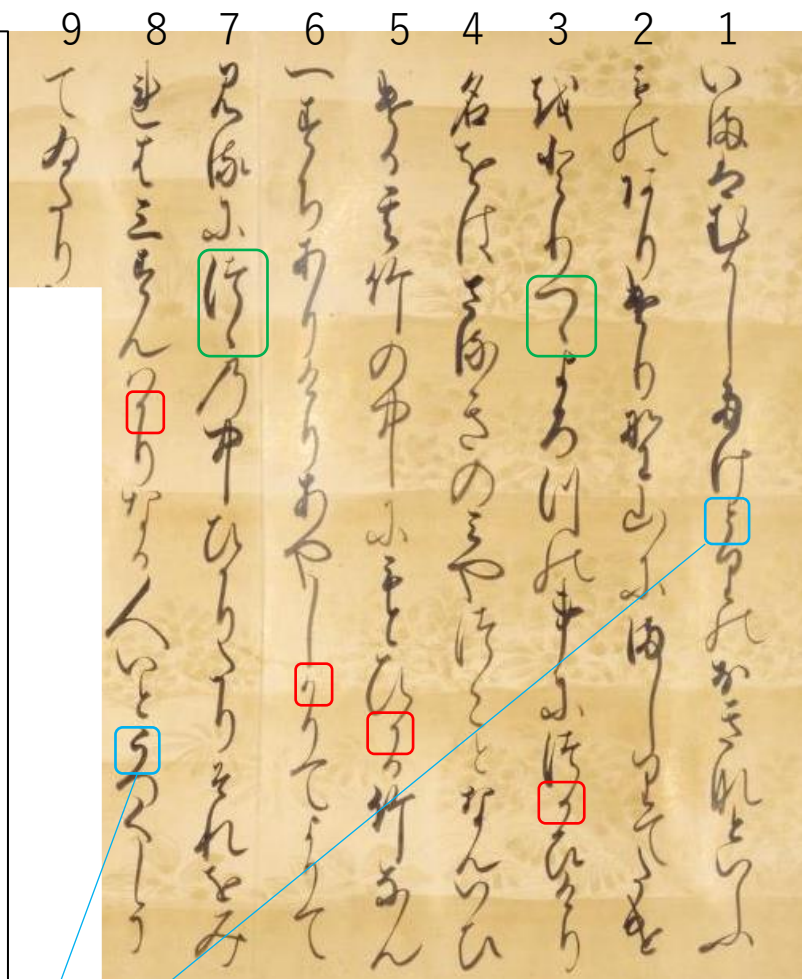 9 8 7 6 5 4 3 2 1
いまはむかしたけとりのおきなといふ
ものありけり野山にましりてたけ
をとりつゝよろつの事につかひけり
名をはさぬきのみやつことなんいひ
ける其竹の中にもとひかる竹なん
一すちありけりあやしかりてよりて
見るにつゝの中ひかりたりそれをみ
れは三すんはかりなる人いとうつくしう
てゐたり